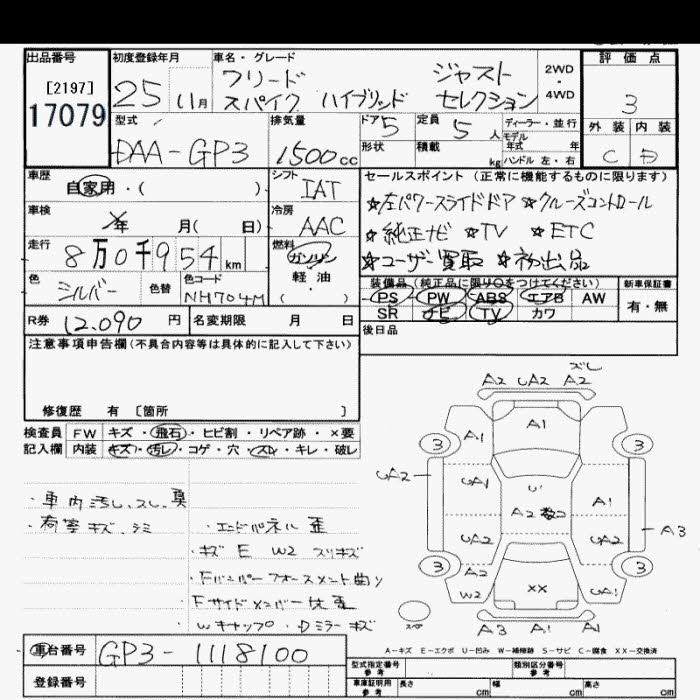 出品番号
[2197]
17079
初度登録年月
25 11月
車名・グレード
フリード ジャスト
スパイク ハイブリッド セレクション
2WD
・
4WD
評価点
3
外装 内装
C D
型式
DAA-GP3
排気量
1500cc
ドア 5
定員 5人
ディーラー・並行
モデル
年式 年
形状
積載 kg
ハンドル 左・右
車歴
自家用・( )
シフト
IAT
車検
年 月( 日)
冷房
AAC
走行
8万0千954km
燃料
ガソリン
軽・油
・
( )
色
シルバー
色替
色コード
NH704M
セールスポイント(正常に機能するものに限ります)
☆左パワースライドドア ☆クルーズコントロール
☆純正ナビ ☆TV ☆ETC
☆ユーザー買取 ☆初出品
装備品(純正品に限り○をつけてください)
PS PW ABS エアB AW
SR ナビ TV カワ
新車保証書
有・無
R券 12,090円
名変期限 月 日
後日品
注意事項申告欄(不具合内容等は具体的に記入して下さい)
修復歴 有 [箇所 ]
検査員
記入欄
FW キズ・飛石・ヒビ割・リペア跡・×要
内装 キズ・汚レ・コゲ・穴・スレ・キレ・破レ
・車内汚レ、スレ、臭
・荷室キズ、シミ
・エンドパネル歪
・キズE W2 スリキズ
・Fバンパーフォースメント曲り
・Fサイドメンバー
・Wキャップ・Dミラーキズ
ズレ
A2 UA2 A2
A1
3 A1 3
UA2 UA1 U1 A1
A2
UA2 UA2 A3
3 A2 3
W2 XX UA1
スペア
A3 A1 A1
A-キズ E-エクボ U-凹み W-補修跡 S-サビ C-腐食 XX-交換済
車台番号 GP3-1118100
登録番号
型式指定番号
参考
類別区分番号
参考
車庫証明用
参考
長さ cm 幅 cm 高さ cm